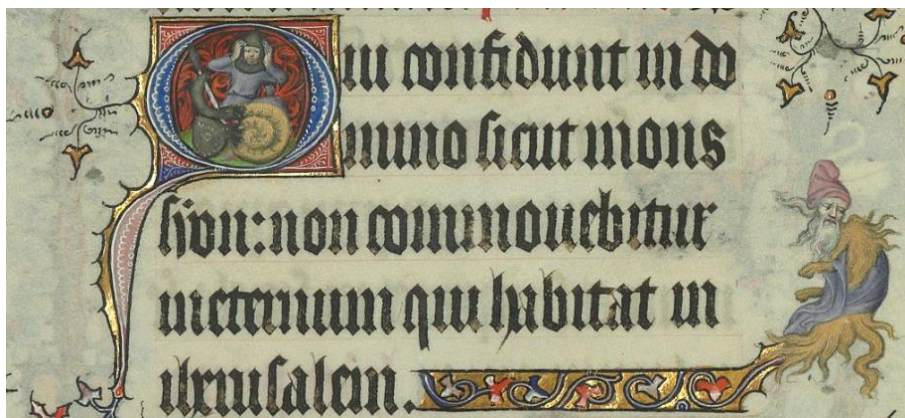 Qui confidunt in do
mino sicut mons
syon: non commouebitur
in eternum qui habitat in
iherusalem.